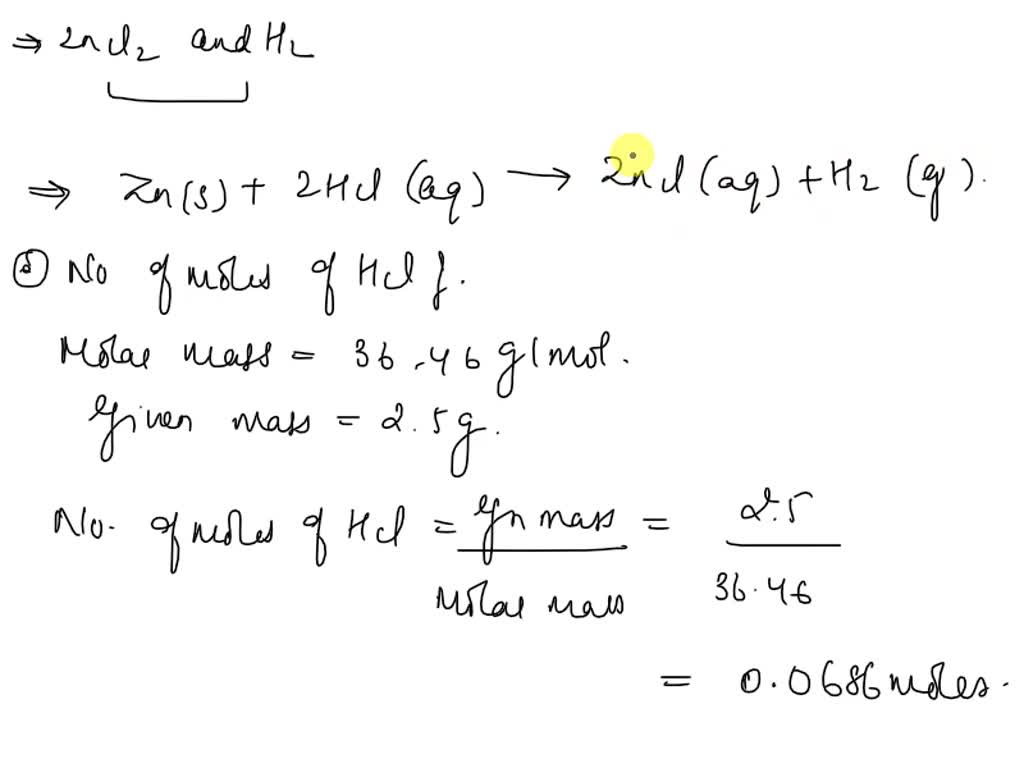 ⇒ ZnCl₂ and H₂
⇒ Zn(s) + 2HCl (aq) → ZnCl (aq) + H₂ (g).
② No of moles of HCl }.
Molar mass = 36.46 g/mol.
Given mass = 2.5g.
No. of moles of HCl = Gn mass / Molar mass = 2.5 / 36.46
= 0.0686 moles.